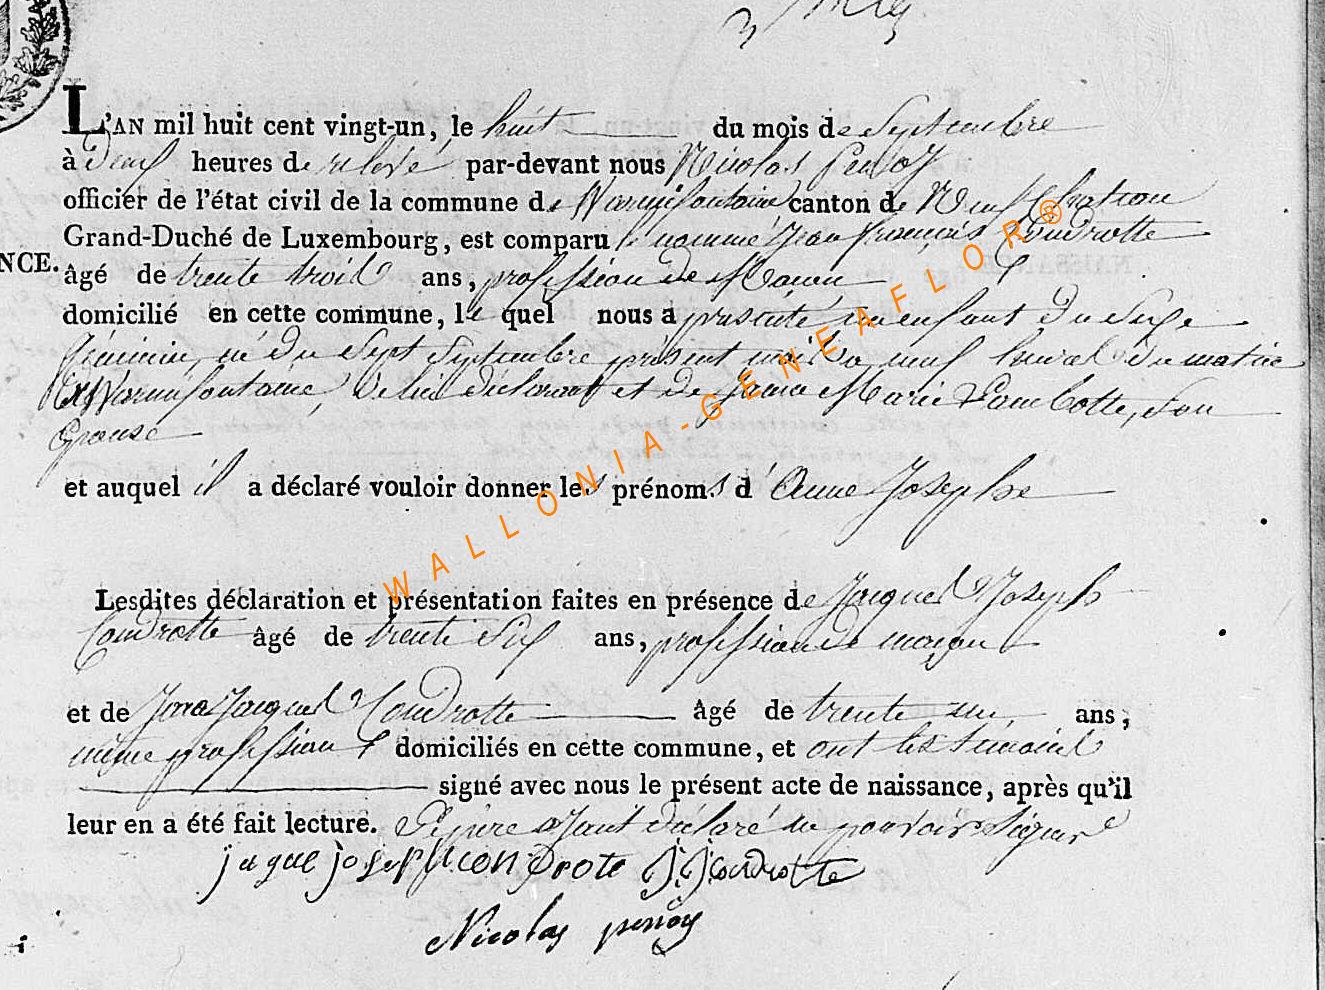 L'AN mil huit cent vingt-un, le huit du mois de Septembre
à deux heures de relevé par-devant nous Nicolas
officier de l'état civil de la commune de Warmifontaine canton de Neufchateau
Grand-Duché de Luxembourg, est comparu le nommé Jean françois Condrotte
NCE.
âgé de trente trois ans, profession de Maçon
domicilié en cette commune, le quel nous a présenté un enfant du Sexe
féminin, né du Sept Septembre présent mois a neuf heures du matin
à Warmifontaine, de lui déclarant et de Jeanne Marie Lambotte, son
Epouse
et auquel il a déclaré vouloir donner les prénoms d'Anne Josephe
Lesdites déclaration et présentation faites en présence de Jacques Joseph
Condrotte âgé de trente Six ans, profession de maçon
et de Jean Jacques Condrotte âgé de trente un ans,
même profession domiciliés en cette commune, et ont les témoins
signé avec nous le présent acte de naissance, après qu'il
leur en a été fait lecture. Le père ayant déclaré ne pouvoir Signer
jaque joseph condrote J J Condrotte
Nicolas
WALLONIA-GENEAFLOR®